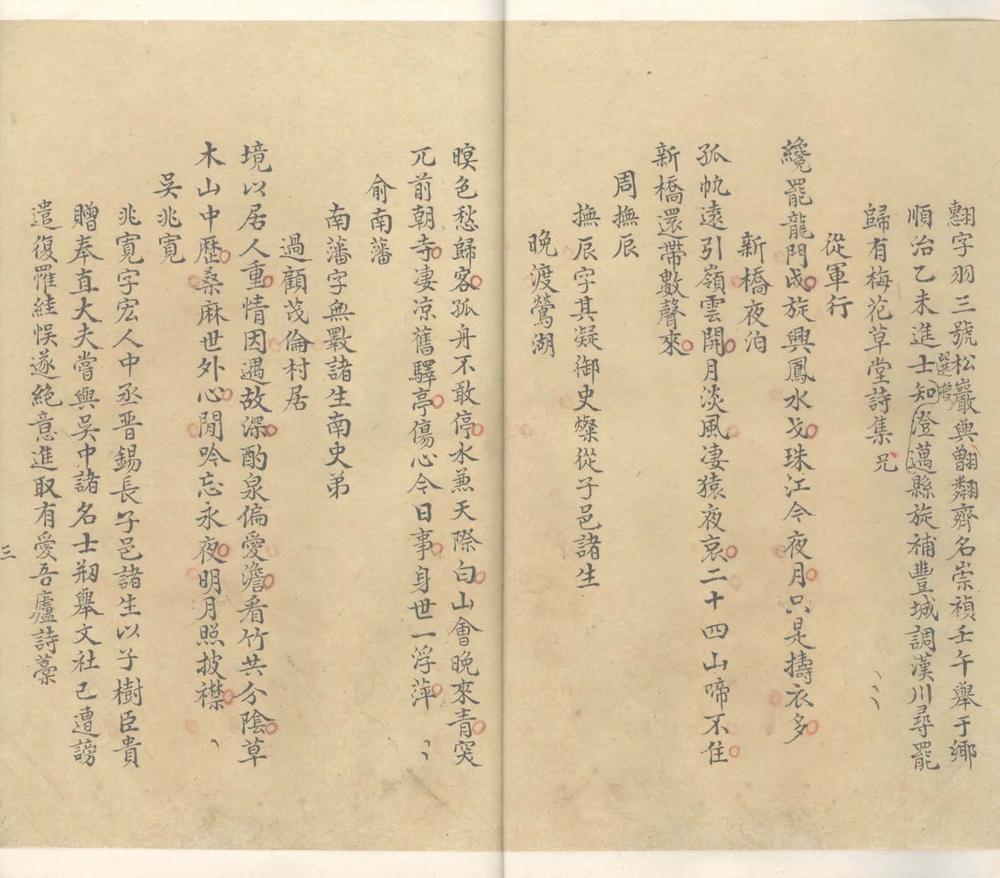 翻字羽三號松巖與翻鄰齊名崇禎壬午舉于鄉
順治乙未進士選授知澄邁縣旋補豐城調漢川尋罷
歸有梅花草堂詩集
從軍行
纔罷龍門戍旋興鳳水戈珠江今夜月只是擣衣多
新橋夜泊
孤帆遠引嶺雲開月淡風淒猿夜哀二十四山啼不住
新橋還帶數聲來
周撫辰
撫辰字其凝御史燦從子邑諸生
晚渡鶯湖
暝色愁歸客孤舟不敢停水兼天際白山會晚來青突
兀前朝寺淒凉舊驛亭傷心今日事身世一浮萍
俞南藩
南藩字無斁諸生南史弟
過顧茂倫村居
境以居人重情因遇故深酌泉偏愛澹看竹共分陰草
木山中歷桑麻世外心閒吟忘永夜明月照披襟
吳兆寬
兆寬字宏人中丞晋錫長子邑諸生以子樹臣貴
贈奉直大夫嘗與吳中諸名士剏舉文社已遭謗
遣復罹絓悞遂絕意進取有愛吾廬詩藁
三